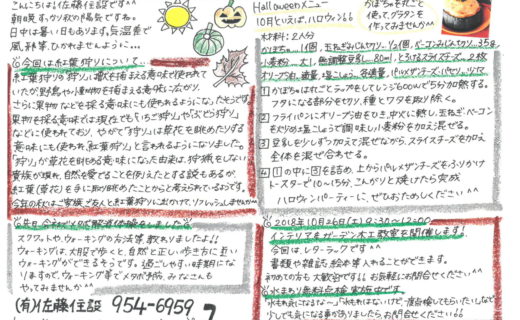 こんにちは!佐藤住設です。
※今回は紅葉狩りについて…
「紅葉狩り」の「狩り」は獣を捕まえる意味で使われて
いたが、野鳥や小動物を捕まえる意味に広がり、
さらに果物などを採る意味にも使われるようになったそうです。
果物を採る意味では現在でも「いちご狩り」や「ぶどう狩り」
などに使われており、やがて「狩り」は草花を眺めたりする
意味にも使われ、「紅葉狩り」と言われるようになりました。
「狩り」が草花を眺める意味になった由来は、狩猟をしない
貴族が現れ、自然を愛でることを例えたとする説もあるが、
紅葉(草花)を手に取り眺めたことからと考えられているようです。
今年の秋はご家族、ご友人と紅葉狩りに出かけて、リフレッシュしませんか
スクワットやウォーキングの方法等、教わりましたよ!!
ウォーキングは、大股で歩くと自然と正しい歩き方に近い
ウォーキングができるそうです。過ごしやすい時期にな
りますので、ウォーキング等でメタボ解消、みなさんも
やってみませんか^^
(有)佐藤住設 954-6959
Halloweenメニュー
10月といえば、ハロウィン
かぼちゃを丸ごと
使って、グラタンを
作ってみませんか
材料:2人分
かぼちゃ…1個、玉ねぎみじん切り…1/4個、ベーコンみじん切り…35g
小麦粉…大1、無調整豆乳…80ml、とろけるスライスチーズ…2枚
オリーブ油…適量、塩こしょう…各適量、パルメザンチーズ、パセリ…
1 かぼちゃは丸ごとラップをしてレンジ600wで5分加熱する。
フタになる部分を切り、種とワタを取り除く。
2 フライパンにオリーブ油をひき、中火に熱し、玉ねぎ・ベーコン
を炒め塩こしょうで調味しい小麦粉を加え混ぜる。
3 豆乳を少しずつ加えて混ぜながら、スライスチーズを加え
全体を混ぜ合わせる。
4 1の中に3を詰め、上からパルメザンチーズをふりかけ
トースターで10~15分、こんがりと焼けたら完成
ハロウィンパーティーに、ぜひおためしください^^
※2018年10月26日(土)9:30~12:00
インテリア&ガーデン木工教室を開催します!
今回は、レターラックです^^
書類や雑誌、絵本等入れることができます。
初めての方も大歓迎です!!お気軽にお問合せください
※水まわり無料点検 実施中です。
少しでも気になる事がありましたらお問合せください!